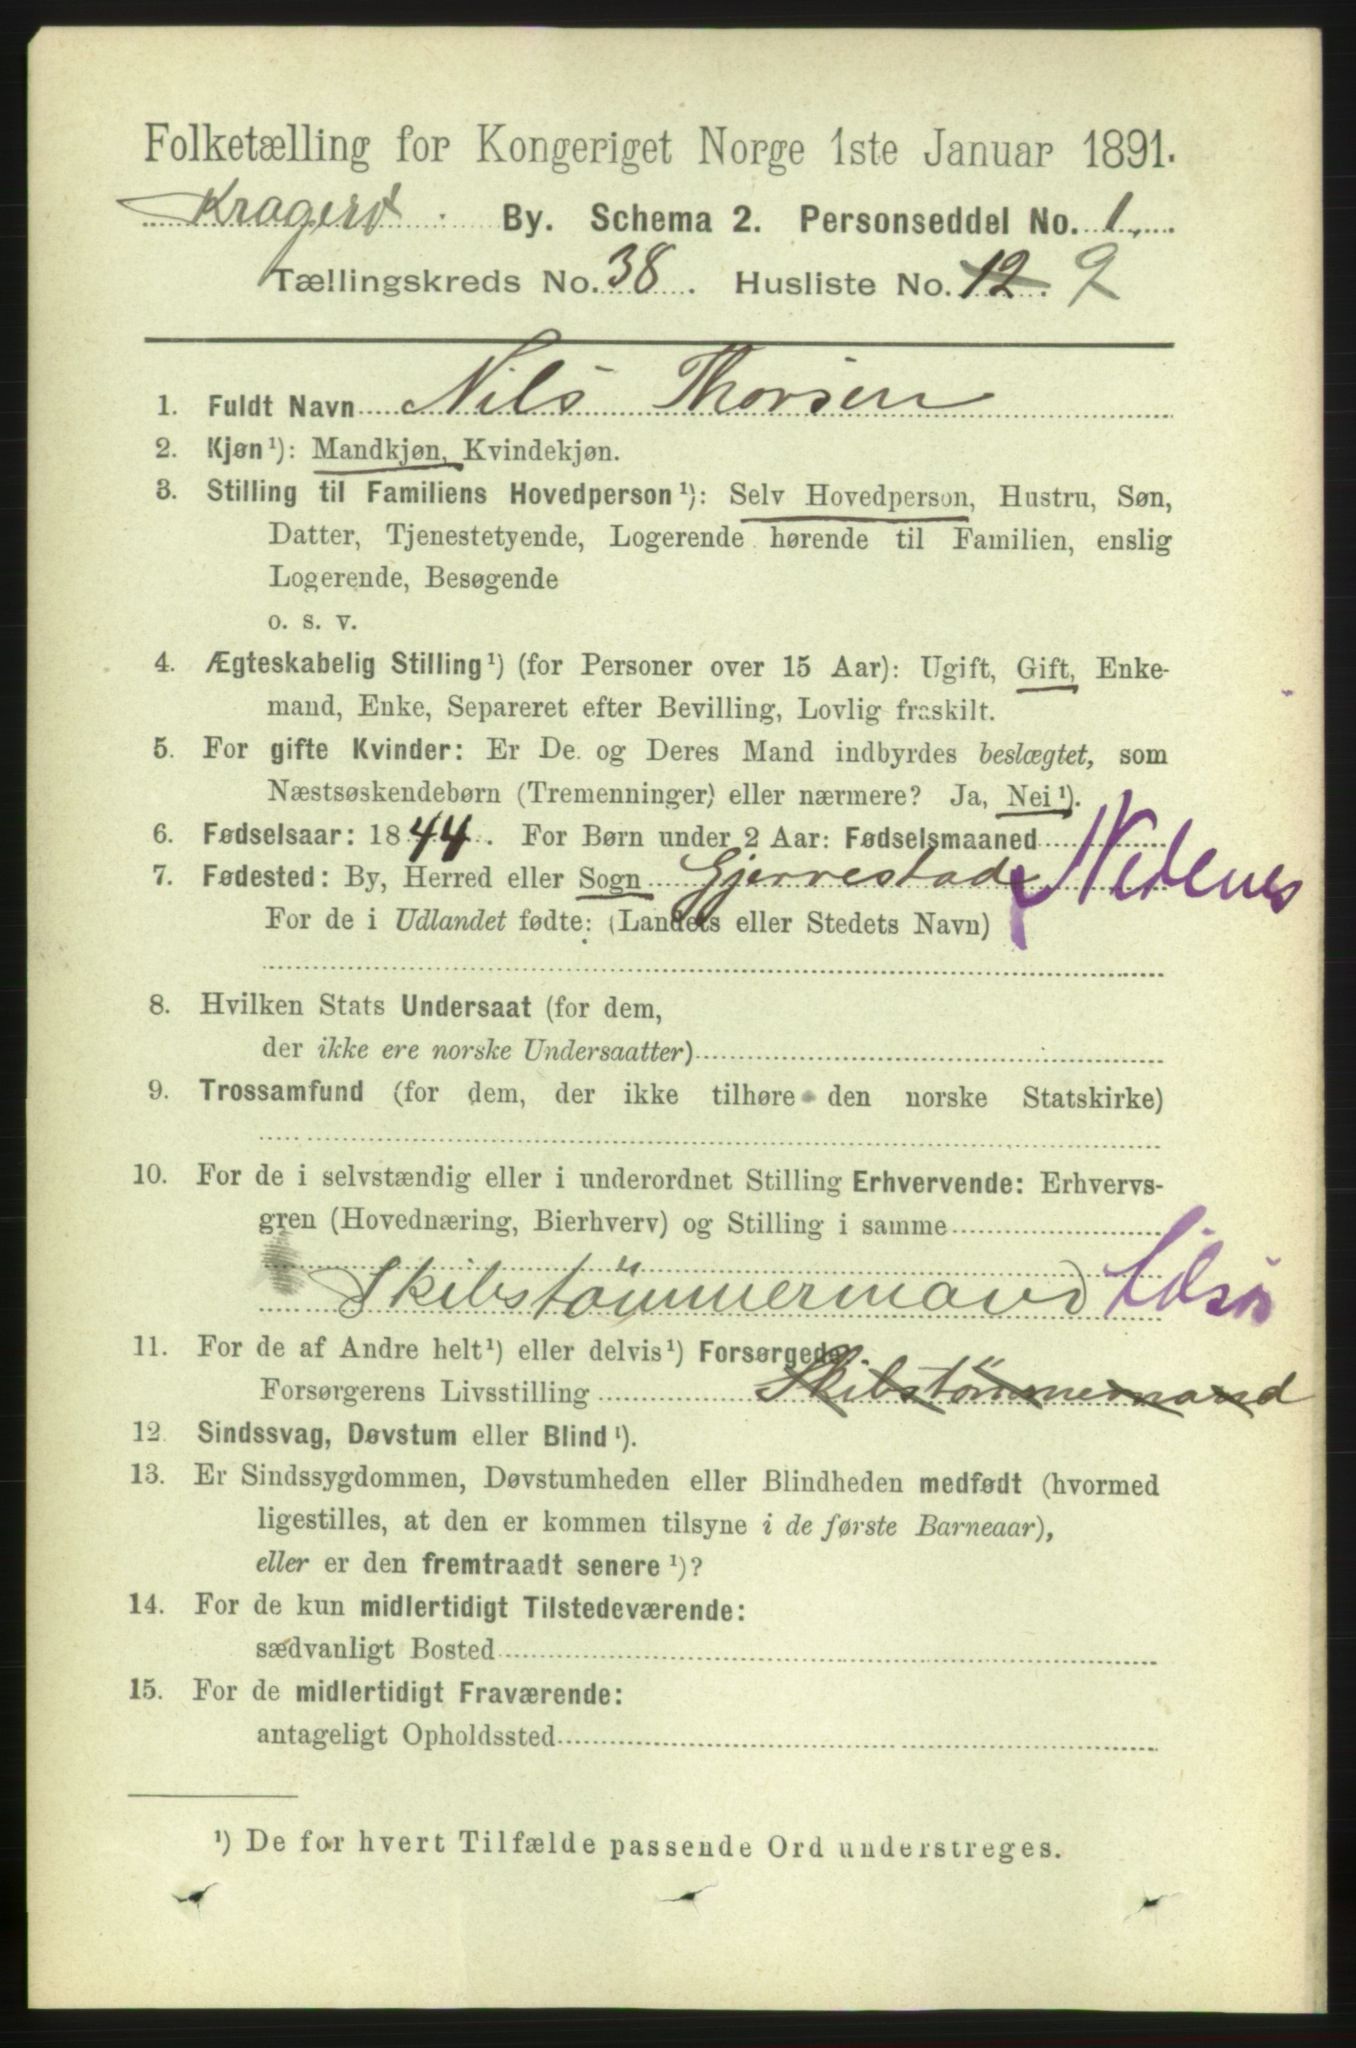 Folketælling for Kongeriget Norge 1ste Januar 1891.
Kragerø By. Schema 2. Personseddel No. 1.
Tællingskreds No. 38. Husliste No. 12. 2
1. Fuldt Navn Nils Thorsen
2. Kjøn¹): Mandkjøn, Kvindekjøn.
3. Stilling til Familiens Hovedperson¹): Selv Hovedperson, Hustru, Søn,
Datter, Tjenestetyende, Logerende hørende til Familien, enslig
Logerende, Besøgende
o. s. v.
4. Ægteskabelig Stilling¹) (for Personer over 15 Aar): Ugift, Gift, Enke-
mand, Enke, Separeret efter Bevilling, Lovlig fraskilt.
5. For gifte Kvinder: Er De og Deres Mand indbyrdes beslægtet, som
Næstsøskendebørn (Tremenninger) eller nærmere? Ja, Nei¹).
6. Fødselsaar: 1844. For Børn under 2 Aar: Fødselsmaaned
7. Fødested: By, Herred eller Sogn Gjerrestad Nedenes
For de i Udlandet fødte: (Landets eller Stedets Navn)
8. Hvilken Stats Undersaat (for dem,
der ikke ere norske Undersaatter)
9. Trossamfund (for dem, der ikke tilhøre den norske Statskirke)
10. For de i selvstændig eller i underordnet Stilling Erhvervende: Erhvervs-
gren (Hovednæring, Bierhverv) og Stilling i samme
Skibstömmermand
11. For de af Andre helt¹) eller delvis¹) Forsørgede.
Forsørgerens Livsstilling Skibstömmermand
12. Sindssvag, Døvstum eller Blind¹).
13. Er Sindssygdommen, Døvstumheden eller Blindheden medfødt (hvormed
ligestilles, at den er kommen tilsyne i de første Barneaar),
eller er den fremtraadt senere¹)?
14. For de kun midlertidigt Tilstedeværende:
sædvanligt Bosted
15. For de midlertidigt Fraværende:
antageligt Opholdssted
¹) De for hvert Tilfælde passende Ord understreges.